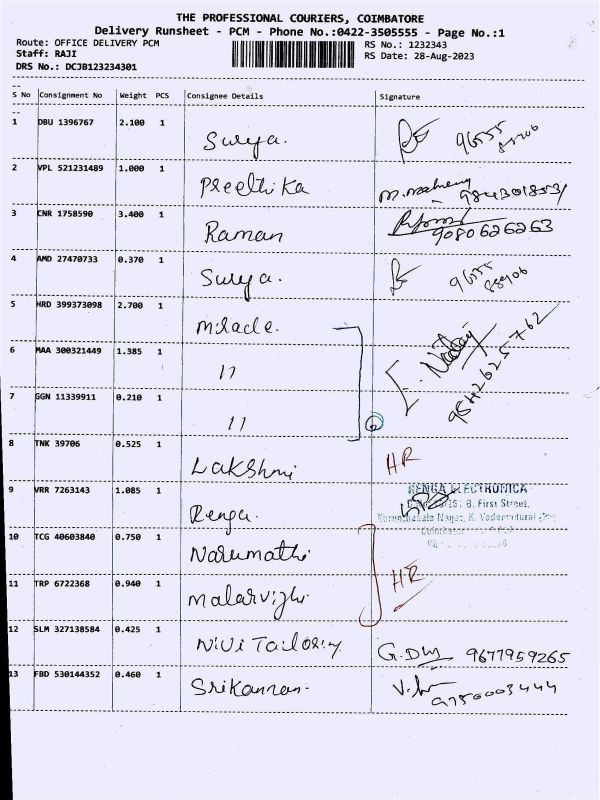 THE PROFESSIONAL COURIERS, COIMBATORE
Delivery Runsheet - PCM - Phone No.:0422-3505555 - Page No.:1
Route: OFFICE DELIVERY PCM RS No.: 1232343
Staff: RAJI RS Date: 28-Aug-2023
DRS No.: DCJB123234301
S No Consignment No Weight PCS Consignee Details Signature
1 DBU 1396767 2.100 1 Surya.
2 VPL 521231489 1.000 1 Preethika 9843018531
3 CNR 1758590 3.400 1 Raman 9080626263
4 AMD 27470733 0.370 1 Surya. 96555 88906
5 HRD 399373098 2.700 1 Miracle.
6 MAA 300321449 1.385 1 11
7 GGN 11339911 0.210 1 11 9542625762
8 TNK 39706 0.525 1 Lakshmi HR
9 VRR 7263143 1.085 1 Renga.
RENGA ELECTRONICA
B, First Street,
10 TCG 40603840 0.750 1 Narumathi
11 TRP 6722368 0.940 1 Malarvizhi HR
12 SLM 327138584 0.425 1 Nivi Tailoring 9677959265
13 FBD 530144352 0.460 1 Srikannan. 9750003444